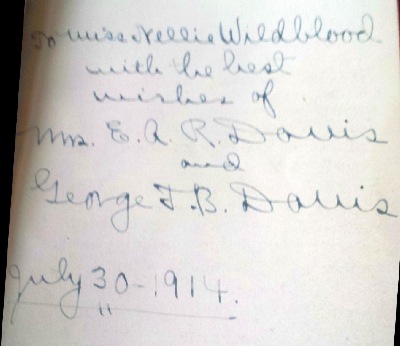 To Miss Nellie Wildblood
with the best
wishes of
Mrs. E. A. R. Davis
and
George T. B. Davis
July 30 - 1914.
"